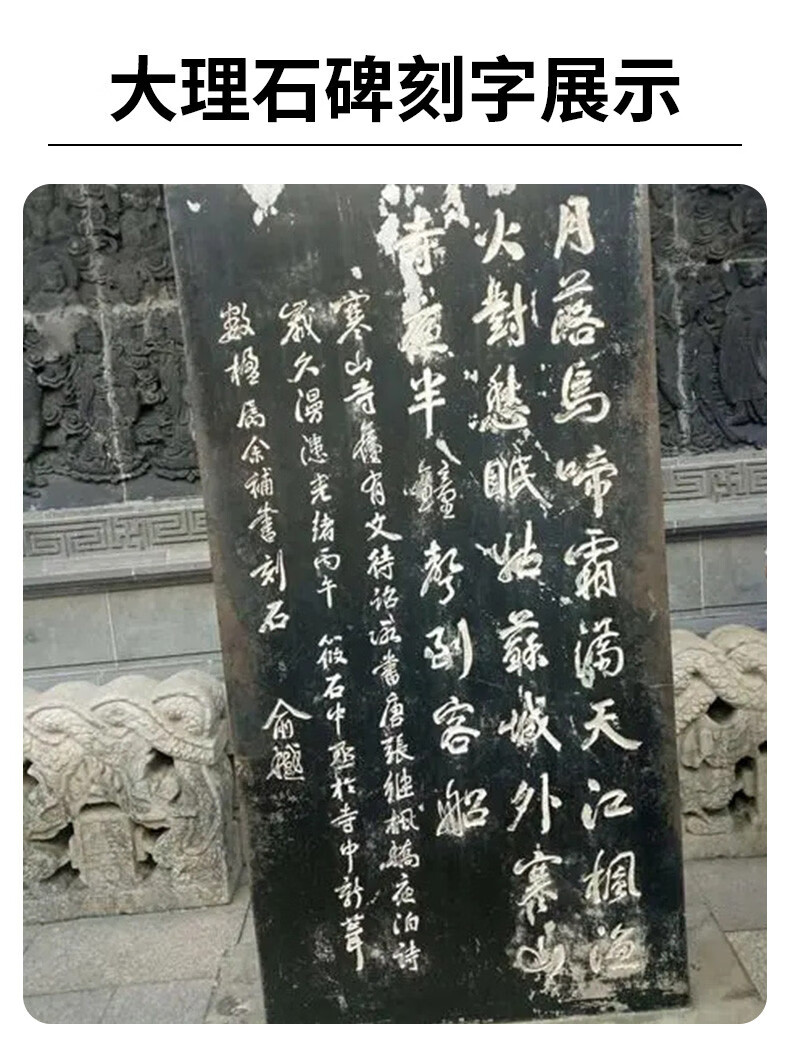 大理石碑刻字展示
月落烏啼霜滿天江楓漁
火對愁眠姑蘇城外寒山
寺夜半鐘聲到客船
寒山寺舊有文待詔所書唐張繼楓橋夜泊詩
歲久漫漶光緒丙午筱石中丞於寺中新葺
數楹屬余補書刻石
俞樾